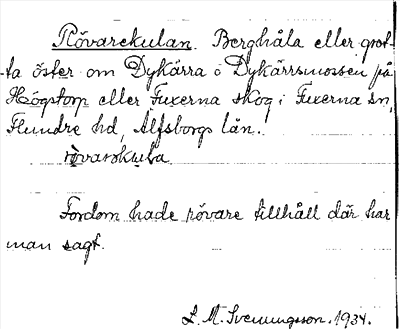 Rövarekulan. Berghåla eller grot-
ta öster om Dykärra o Dykärrsmossen på
Högstorp eller Fuxerna skog i Fuxerna sn,
Flundre hd, Älfsborgs län.
rövarekula
Fordom hade rövare tillhåll där har
man sagt.
L. M. Svenungsson. 1934.